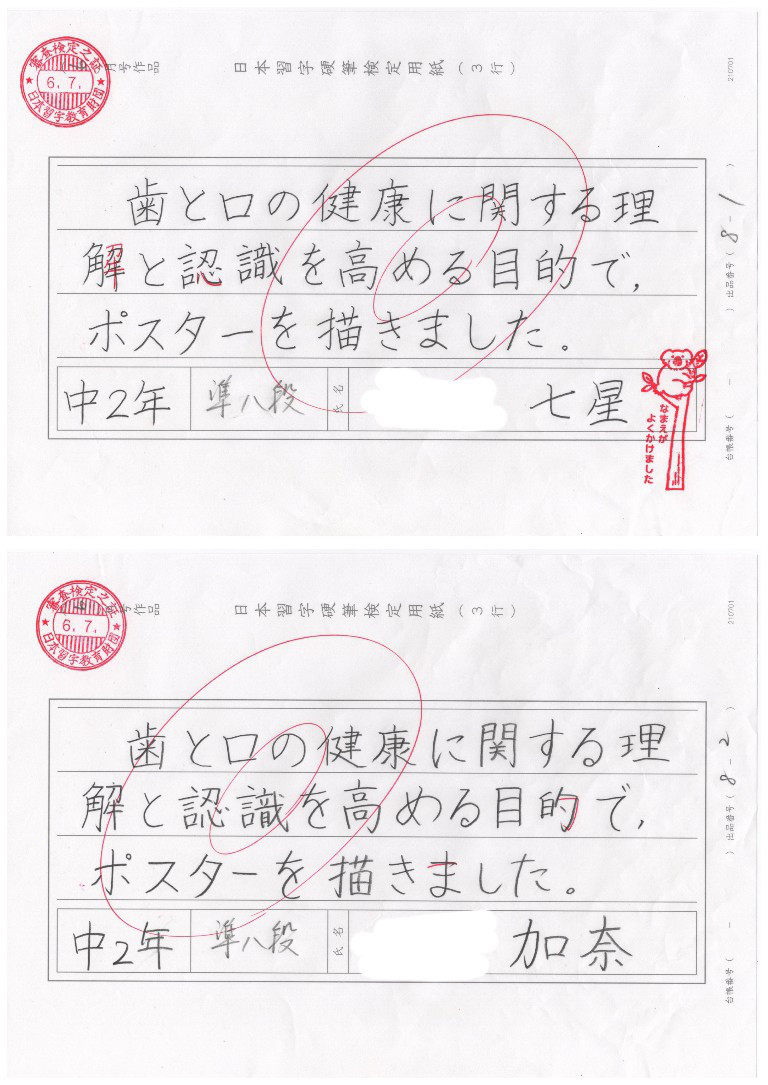 審査検定之証
6.7.
日本習字教育財団
月号作品
日本習字硬筆検定用紙(3行)
210701
歯と口の健康に関する理
解と認識を高める目的で,
ポスターを描きました。
中2年 準八段 氏名 七星
出品番号( 8-1 )
台帳番号( - )
なまえが
よくかけました
審査検定之証
6.7.
日本習字教育財団
月号作品
日本習字硬筆検定用紙(3行)
210701
歯と口の健康に関する理
解と認識を高める目的で,
ポスターを描きました。
中2年 準八段 氏名 加奈
出品番号( 8-2 )
台帳番号( - )